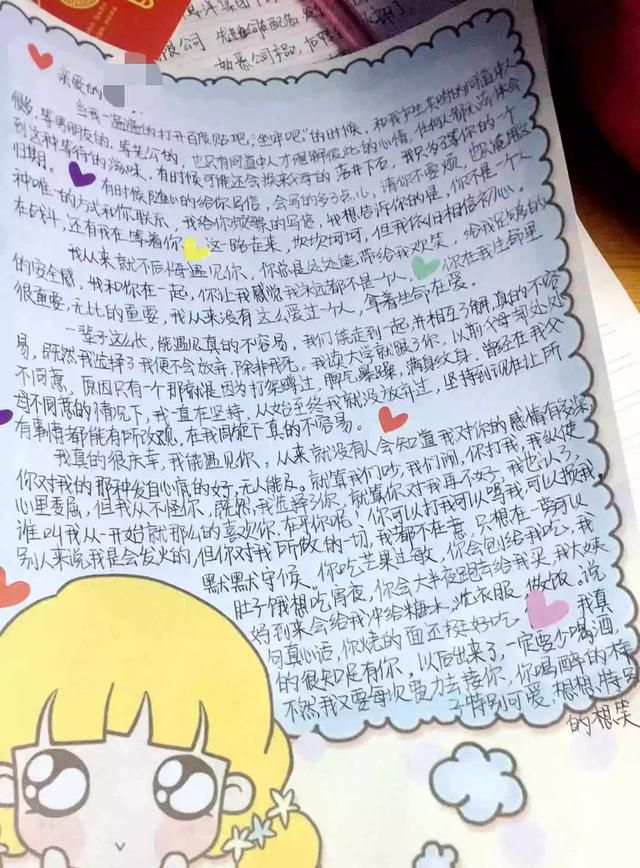 亲爱的
当我一遍遍的打开百度贴吧,“坐牢吧”的时候,和我产生共鸣的同道中人
很多,等男朋友的,等老公的,也只有同道中人才理解彼此的心情,任何人都无法体会
到这种等待的滋味,有时候可能还会换来父母的落井下石,我只为了等你的一个
归期。有时候随心的给你写信,会写的多了点儿,请你不要烦,也只能用这
种唯一的方式和你联系,我给你频繁的写信,我想告诉你的是,你不是一个人
在战斗,还有我在等着你 这一路走来,坎坎坷坷,但我依旧相信初心。
我从来就不后悔遇见你,你总是处处逗带给我欢笑,给我足够的
的安全感,我和你在一起,你让我感觉我永远都不是一个人,你在我生命里
很重要,无比的重要,我从来没有这么爱过一个人,拿着生命在爱。
一辈子这么长,能遇见真的不容易,我们能走到一起,并相互了解,真的不容
易,既然我选择了我便不会放弃,除非我死。我读大学就跟了你,以前父母却处处
不同意,原因只有一个那就是因为打架蹲过,脾气暴躁,满身纹身。曾经在我父
母不同意的情况下,我一直在坚持,从始至终我就没放弃过,坚持到现在让所
有事情都能有所改观,在我围墙下真的不容易。
我真的很庆幸,我能遇见你,从来就没有人会知道我对你的感情有多深,
你对我的那种发自心底的好,无人能及。就算我们吵,我们闹,你打我,我纵使
心里委屈,但我从不怪你,既然,我选择了你,就算你对我再不好,我也认了,
谁叫我从一开始就那么的喜欢你,在乎你呢,你可以打我可以骂我,可以损我,
别人来说我是会发火的,但你对我所做的一切,我都不在意,只想在一旁可以
默默守候。你吃芒果过敏,你会包给我吃,我
肚子饿想吃宵夜,你会大半夜跑去给我买,我大姨
妈到来会给我冲给糖水,洗衣服,做饭,说
句真心话,你烧的面还挺好吃,我真
的很知足有你,以后出来了,一定要少喝酒
不然我又要每次费力去接你,你喝醉的样
子特别可爱,想想特另
的想笑